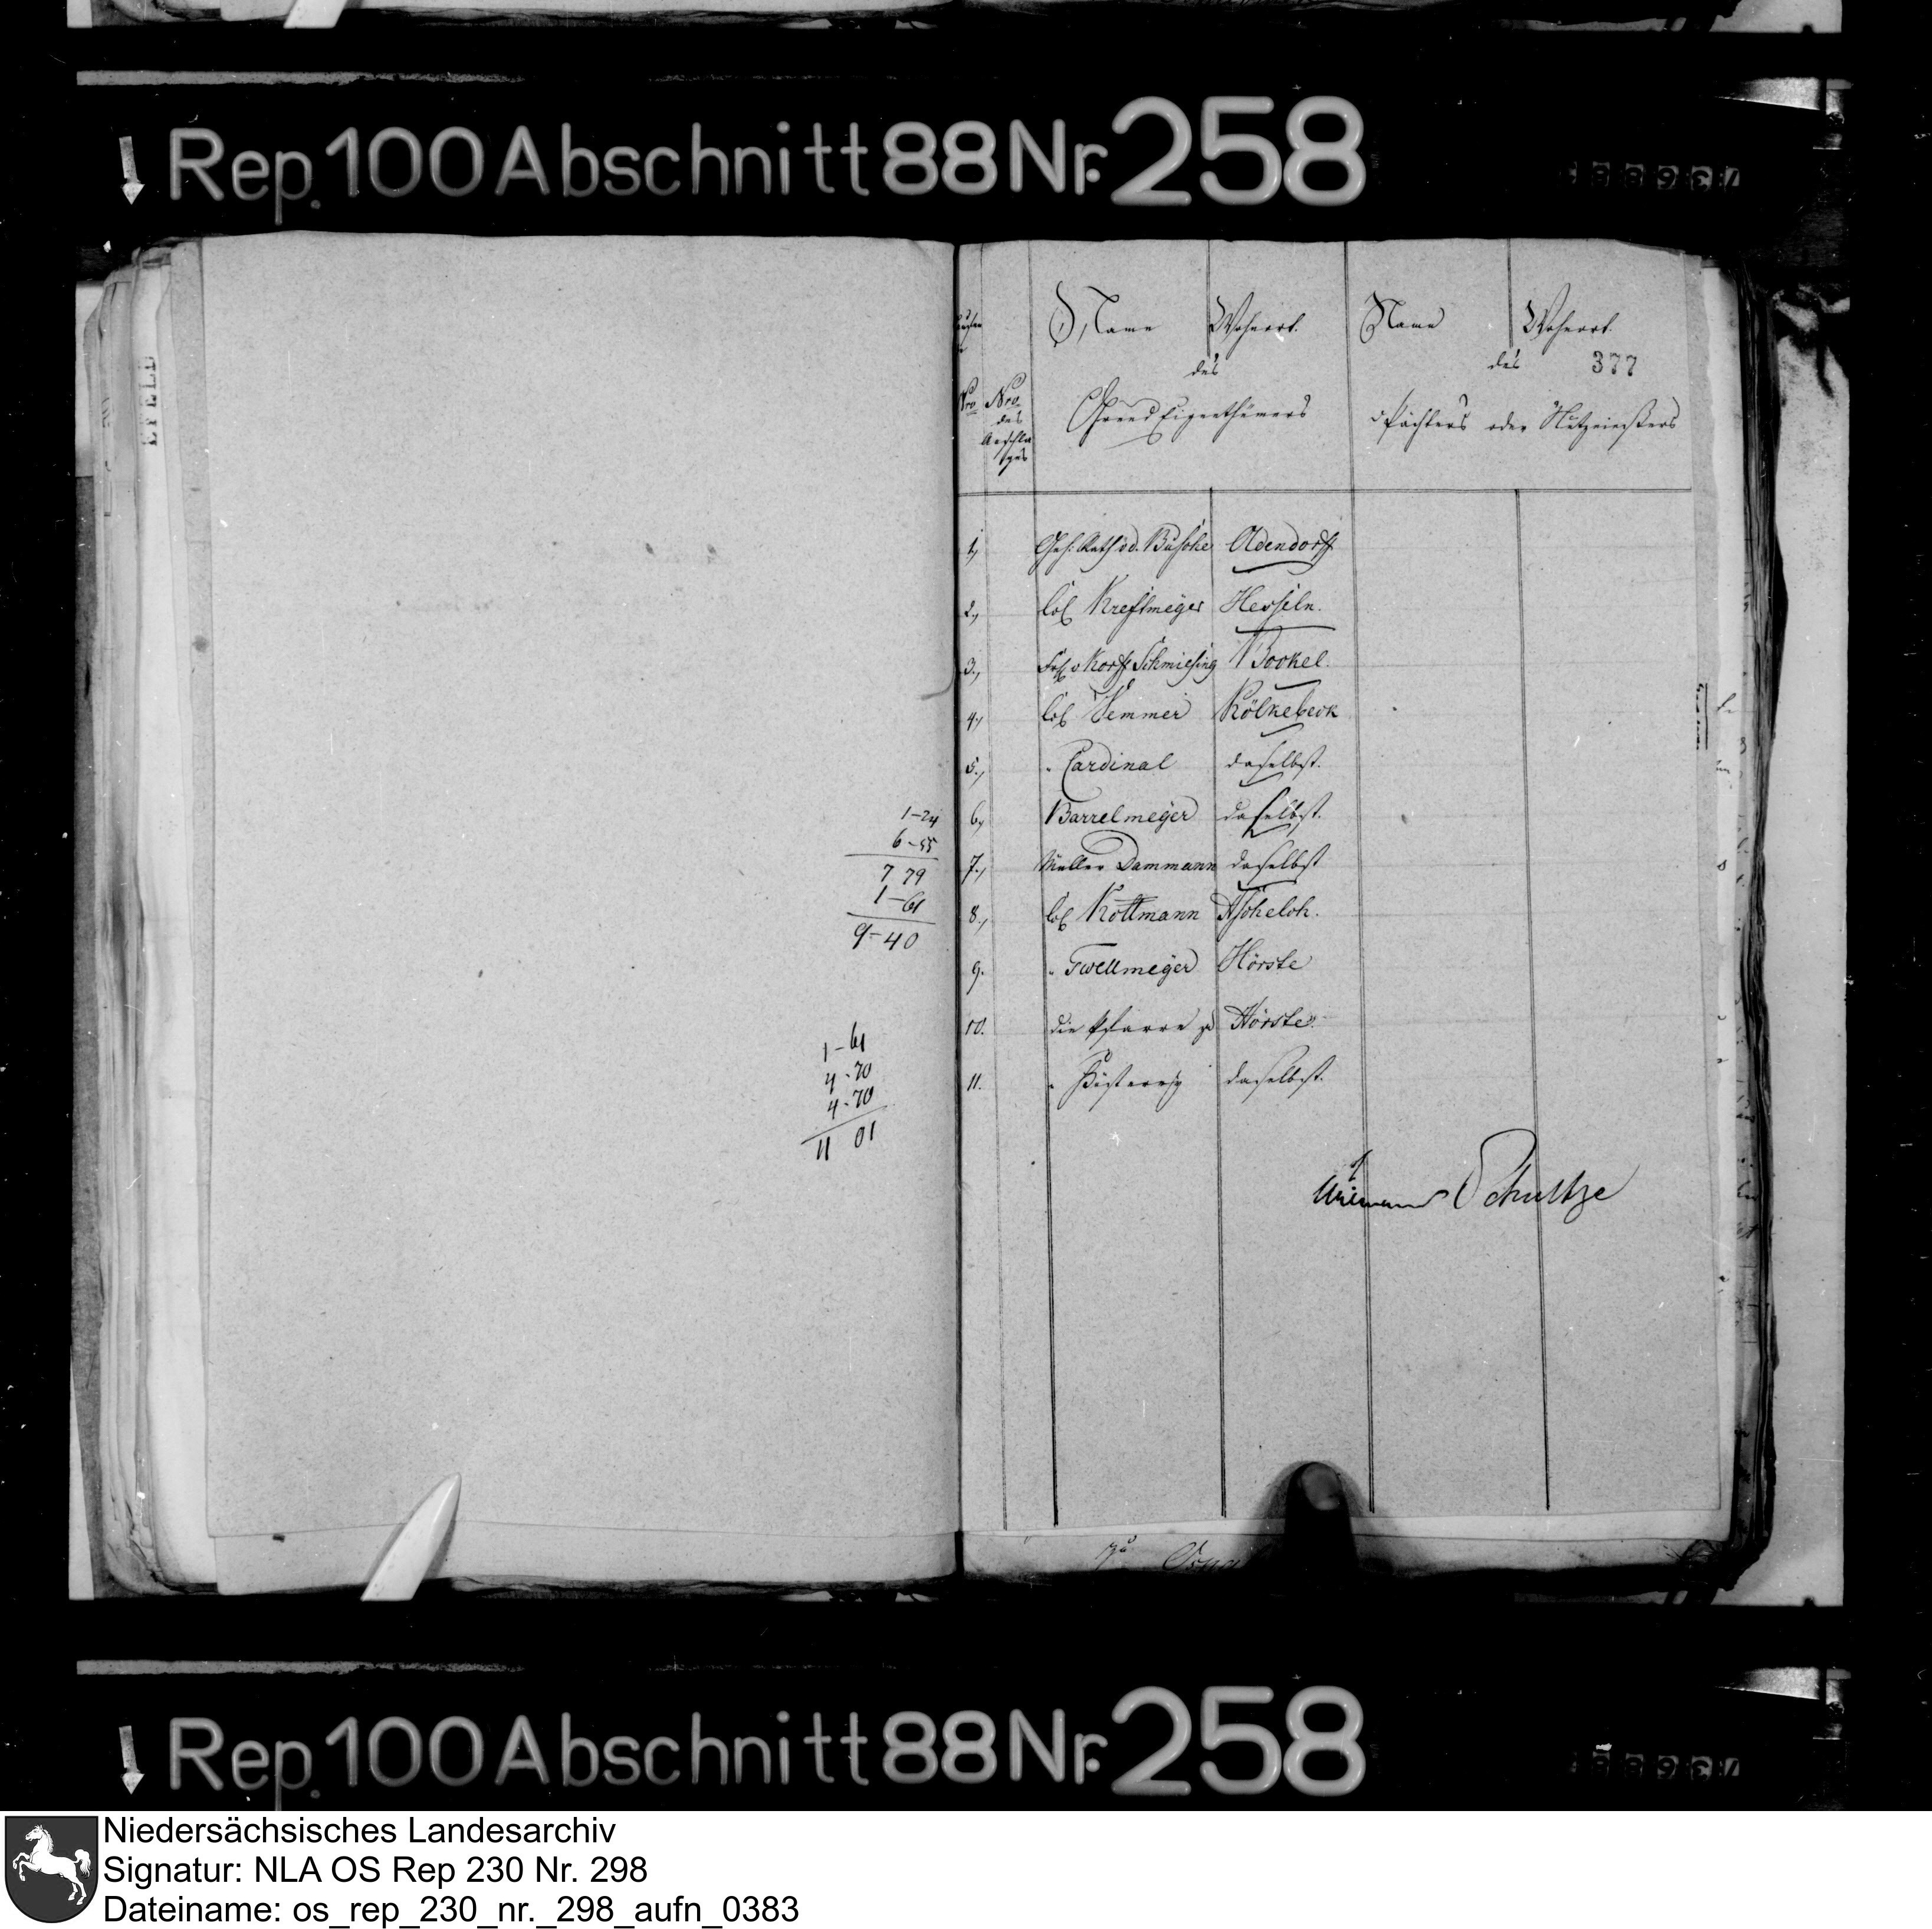 Rep. 100 Abschnitt 88 Nr. 258
Name Wohnort. Name Wohnort.
des des 377
Grund Eigenthümers Pächters oder Nutznießers
Nro Nro
des
Anschla
ges
1, Geh: Rath v d. Busche Oldendorff
2, Col Kreftmeÿer Hesseln.
3., v Korff Schmiesing Bockel.
4, Col Kölkebeck
5., " Cardinal daselbst.
6, Barrelmeÿer daselbst.
7., Müller Dammann daselbst
8., Col Kottmann Ascheloh.
9. " Twellmeÿer Hörste
10. die Pfarre zu Hörste.
11. " Küsterey daselbst.
Schultze
1-24
6-55
7 79
1-61
9-40
1-61
4-70
4-70
11 01
Rep. 100 Abschnitt 88 Nr. 258
Niedersächsisches Landesarchiv
Signatur: NLA OS Rep 230 Nr. 298
Dateiname: os_rep_230_nr._298_aufn_0383